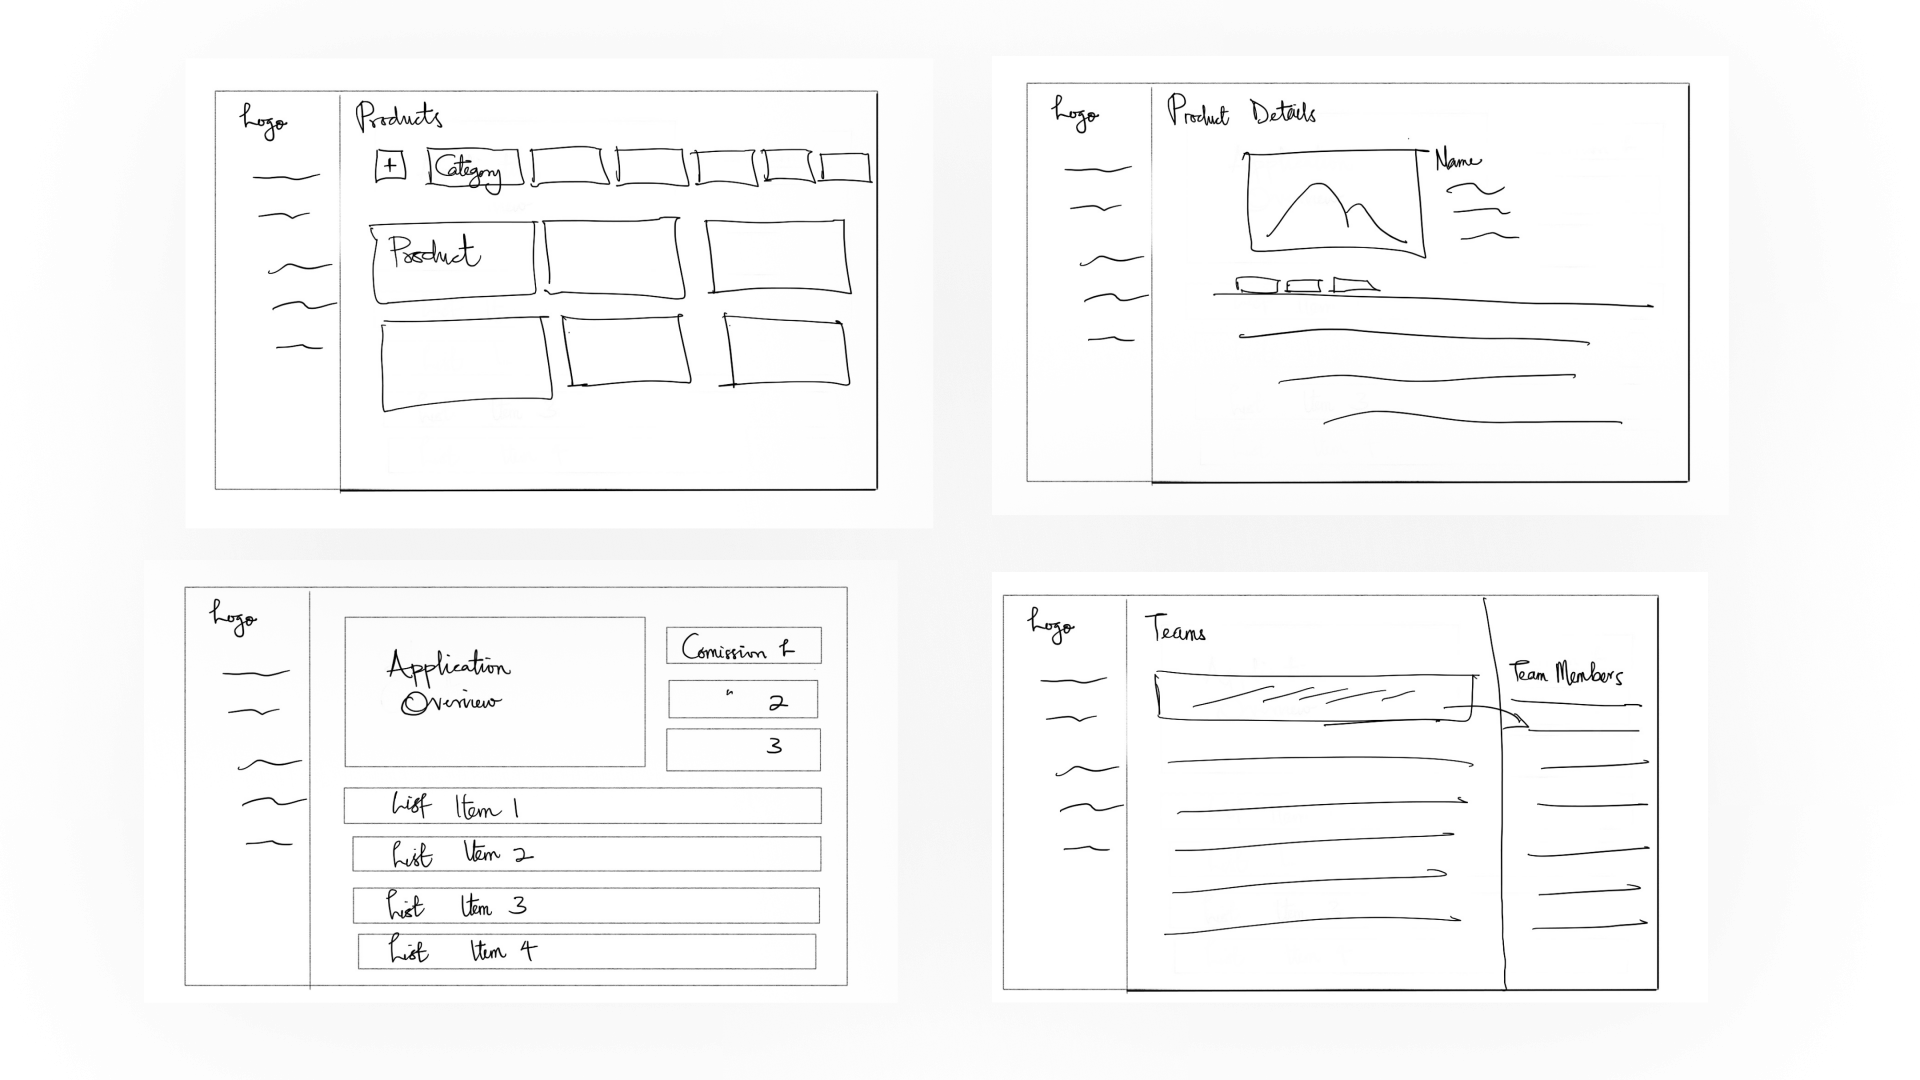 Logo
Products
+
Category
Product
Logo
Product Details
Name
Logo
Application
Overview
Comission 1
" 2
3
List Item 1
List Item 2
List Item 3
List Item 4
Logo
Teams
Team Members